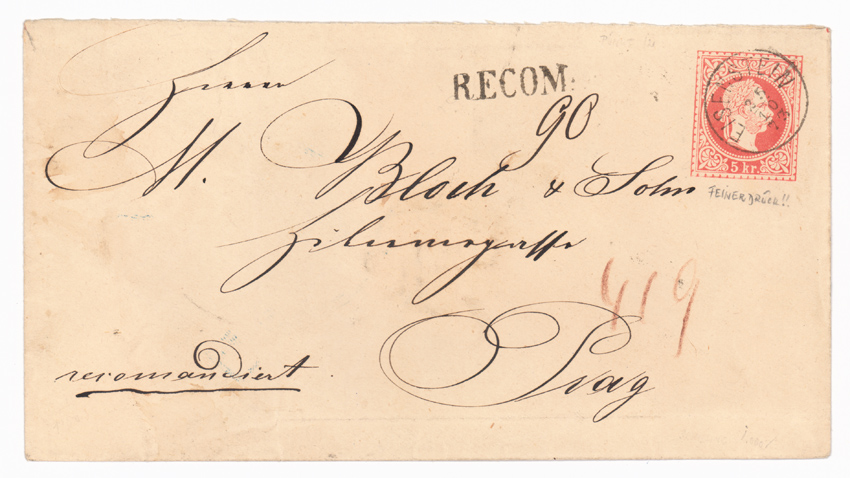 Herrn
RECOM:
90
M. Bloch & Sohn
5 kr.
FEINER DRUCK!!
419
recomandiert.
Prag